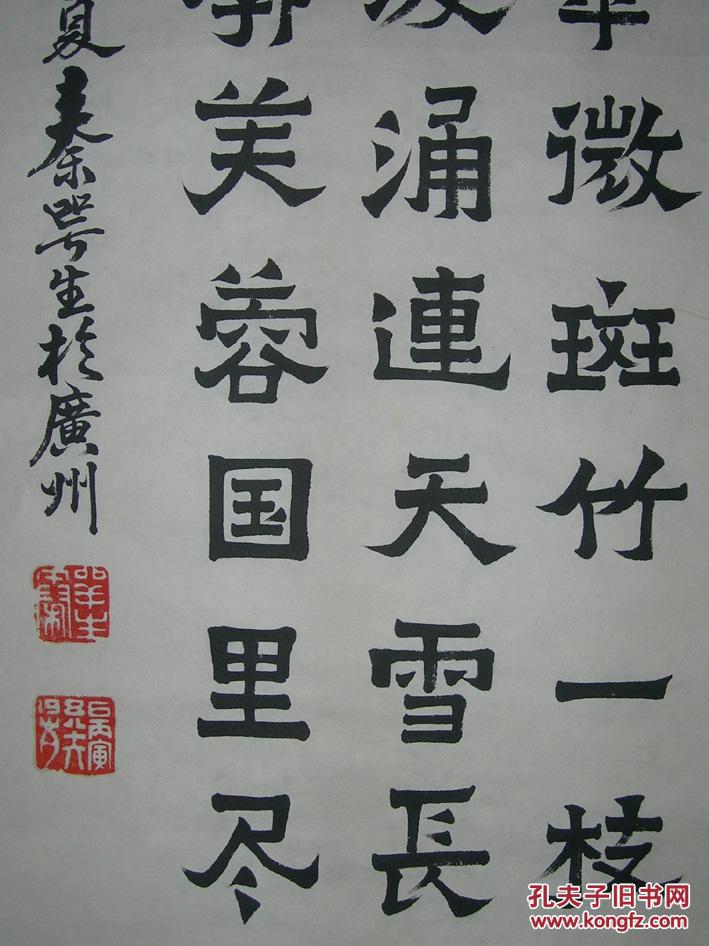 微斑竹一枝
涌連天雪長
芙蓉国里尽
夏秦咢生於廣州
孔夫子旧书网
www.kongfz.com